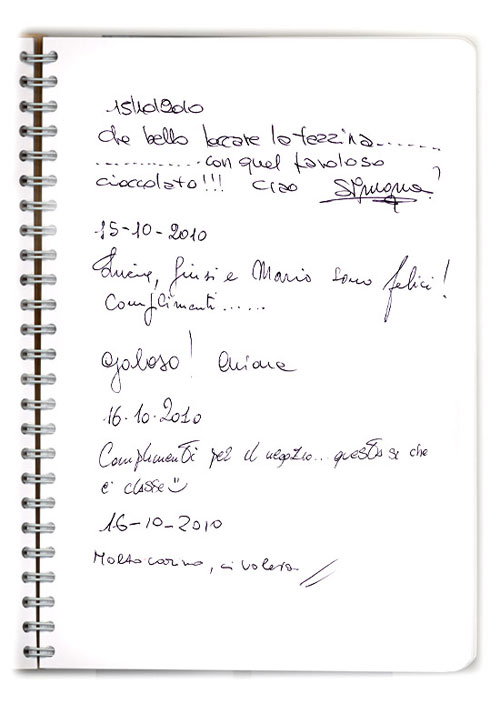 15/10/2010
che bello leccare la tazzina......
............con quel favoloso
cioccolato!!! ciao
15-10-2010
Giusi e Mario sono felici!
Complimenti......
goloso! Chiara
16.10.2010
Complimenti per il negozio... questo si che
e' classe☺
16-10-2010
Molto carino, ci voleva.